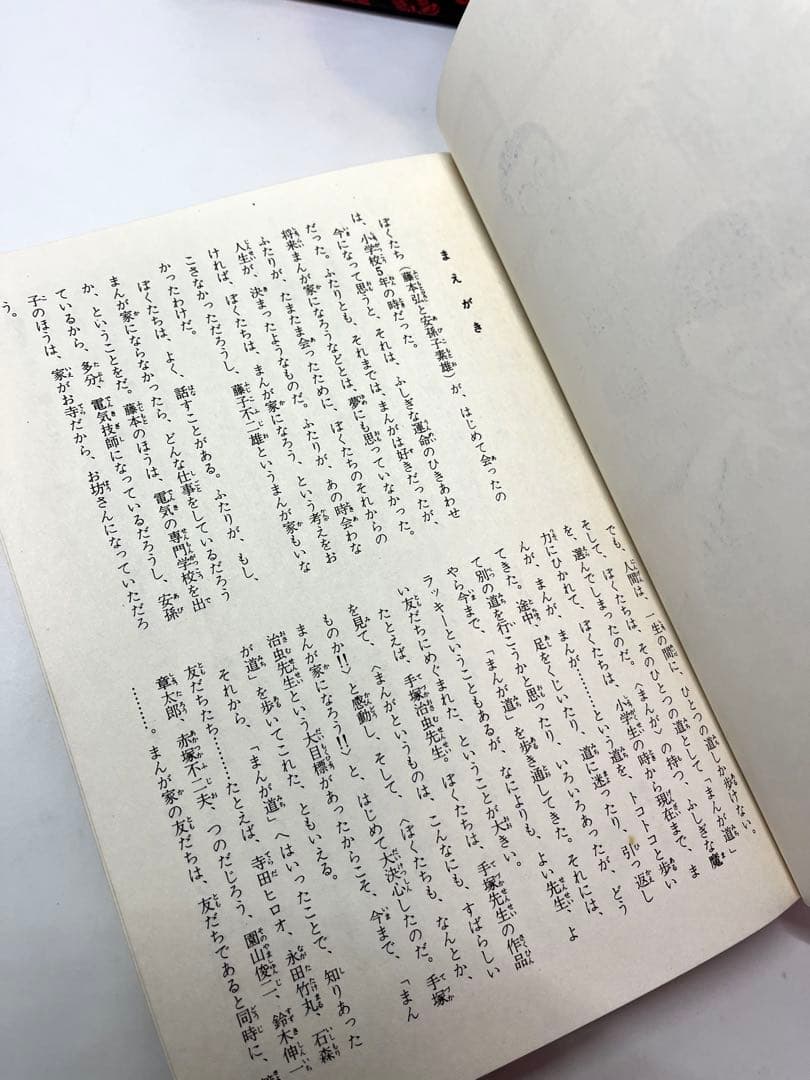 まえがき
ぼくたち（藤本弘と安孫子素雄）が、はじめて会ったの
は、小学校5年の時だった。
今になって思うと、それは、ふしぎな運命のひきあわせ
だった。ふたりとも、それまでは、まんがは好きだったが、
将来まんが家になろうなどとは、夢にも思っていなかった。
ふたりが、たまたま会ったために、ぼくたちのそれからの
人生が、決まったようなものだ。ふたりが、あの時会わな
ければ、ぼくたちは、まんが家になろう、という考えをお
こさなかっただろうし、藤子不二雄というまんが家もいな
かったわけだ。
ぼくたちは、よく、話すことがある。ふたりが、もし、
まんが家にならなかったら、どんな仕事をしているだろう
か、ということをだ。藤本のほうは、電気の専門学校を出
ているから、多分、電気技師になっているだろうし、安孫
子のほうは、家がお寺だから、お坊さんになっていただろ
う。
でも、人間は、一生の間に、ひとつの道しか歩けない。
そして、ぼくたちは、そのひとつの道として、「まんが道」
を、選んでしまったのだ。〈まんが〉の持つ、ふしぎな魔
力にひかれて、ぼくたちは、小学生の時から現在まで、ま
んが、まんが、まんが………という道を、トコトコと歩い
てきた。途中、足をくじいたり、道に迷ったり、引っ返し
て別の道を行こうかと思ったり、いろいろあったが、どう
やら今まで、「まんが道」を歩き通してきた。それには、
ラッキーということもあるが、なによりも、よい先生、よ
い友だちにめぐまれた、ということが大きい。
たとえば、手塚治虫先生。ぼくたちは、手塚先生の作品
を見て、〈まんがというものは、こんなにも、すばらしい
ものか!!〉と感動し、そして、〈ぼくたちも、なんとか、
まんが家になろう!!〉と、はじめて大決心したのだ。手塚
治虫先生という大目標があったからこそ、今まで、「まん
が道」を歩いてこれた、ともいえる。
それから、「まんが道」へはいったことで、知りあった
友だちたち………たとえば、寺田ヒロオ、永田竹丸、石森
章太郎、赤塚不二夫、つのだじろう、園山俊二、鈴木伸一
………。まんが家の友だちは、友だちであると同時に、